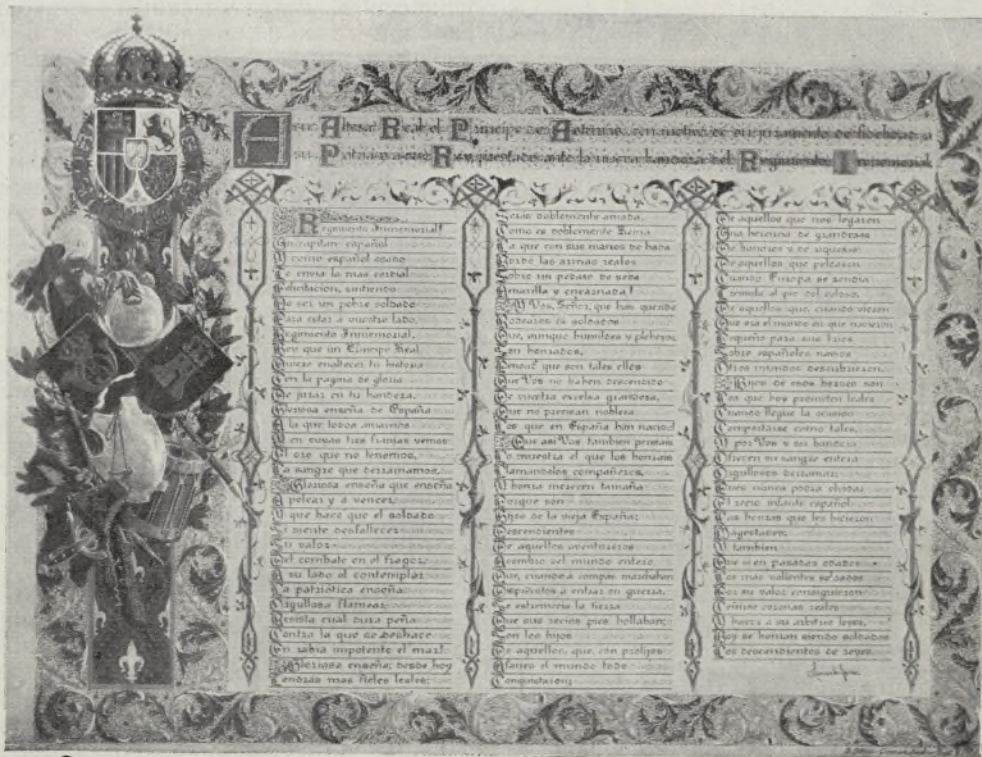 A su Alteza Real el Príncipe de Asturias, con motivo de su juramento de fidelidad a
su Patria y a su Rey, prestados ante la nueva bandera del Regimiento Inmemorial
Regimiento Inmemorial!
Un capitán español
Y como español osado
Te envía la más cordial
Felicitación, sintiendo
No ser un pobre soldado
Para estar a vuestro lado,
Regimiento Inmemorial,
Hoy que un Príncipe Real
Quiere enaltecer tu historia
Con la página de gloria
De jurar en tu bandera,
Gloriosa enseña de España
A la que todos amamos
Y en cuyas tres franjas vemos
El oro que no tenemos,
La sangre que derramamos.
Gloriosa enseña que enseña
A pelear y a vencer
Y que hace que el soldado
Si siente desfallecer
Su valor
Del combate en el fragor
A su lado al contemplar
La patriótica enseña
Orgullosa flamear,
Resista cual dura peña
Contra la que se deshace
En rabia impotente el mar!
Gloriosa enseña: desde hoy
Tendrás más fieles leales;
Serás doblemente amada,
Como es doblemente Reina
La que con sus manos de hada
Borde las armas reales
Sobre un pedazo de seda
Amarilla y encarnada!
Y Vos, Señor, que habéis querido
Rodearos de soldados
Que, aunque humildes y plebeyos,
son honrados,
Pensad que son tales ellos
Que Vos no habéis descendido
De vuestra excelsa grandeza,
Que no precisan nobleza
Los que en España han nacido
Que así Vos también pensáis
Lo muestra el que los honráis
Llamándoles compañeros,
Y honra merecen tamaña
Porque son
Hijos de la vieja España;
Descendientes
De aquellos aventureros
Asombro del mundo entero
Que, cuando a compás marchaban
Dispuestos a entrar en guerra,
Se estremecía la tierra
Que sus recios pies hollaban;
Son los hijos
De aquellos, que, con prolijos
Afanes el mundo todo
Conquistaron;
De aquellos que nos legaron
Una herencia de grandezas
De honores y de riquezas
De aquellos que pelearon
Cuando Europa se rendía
Tremula al pie del coloso,
De aquellos que, cuando vieron
Que era el mundo en que nacieron
Pequeño para sus bríos
Sobre españoles navíos
Otros mundos descubrieron.
Hijos de esos héroes son
Los que hoy prometen leales
Cuando llegue la ocasión
Comportarse como tales,
Y por Vos y su bandera
Ofrecen su sangre entera
Orgullosos derramar;
Pues nunca podrá olvidar
El recio infante español
Las honras que les hicieron
Majestades;
Y también
Que si en pasadas edades
Los más valientes soldados
Por su valor consiguieron
Ceñirse coronas reales
Y hacer a su arbitrio leyes,
Hoy se honran siendo soldados
Los descendientes de reyes.